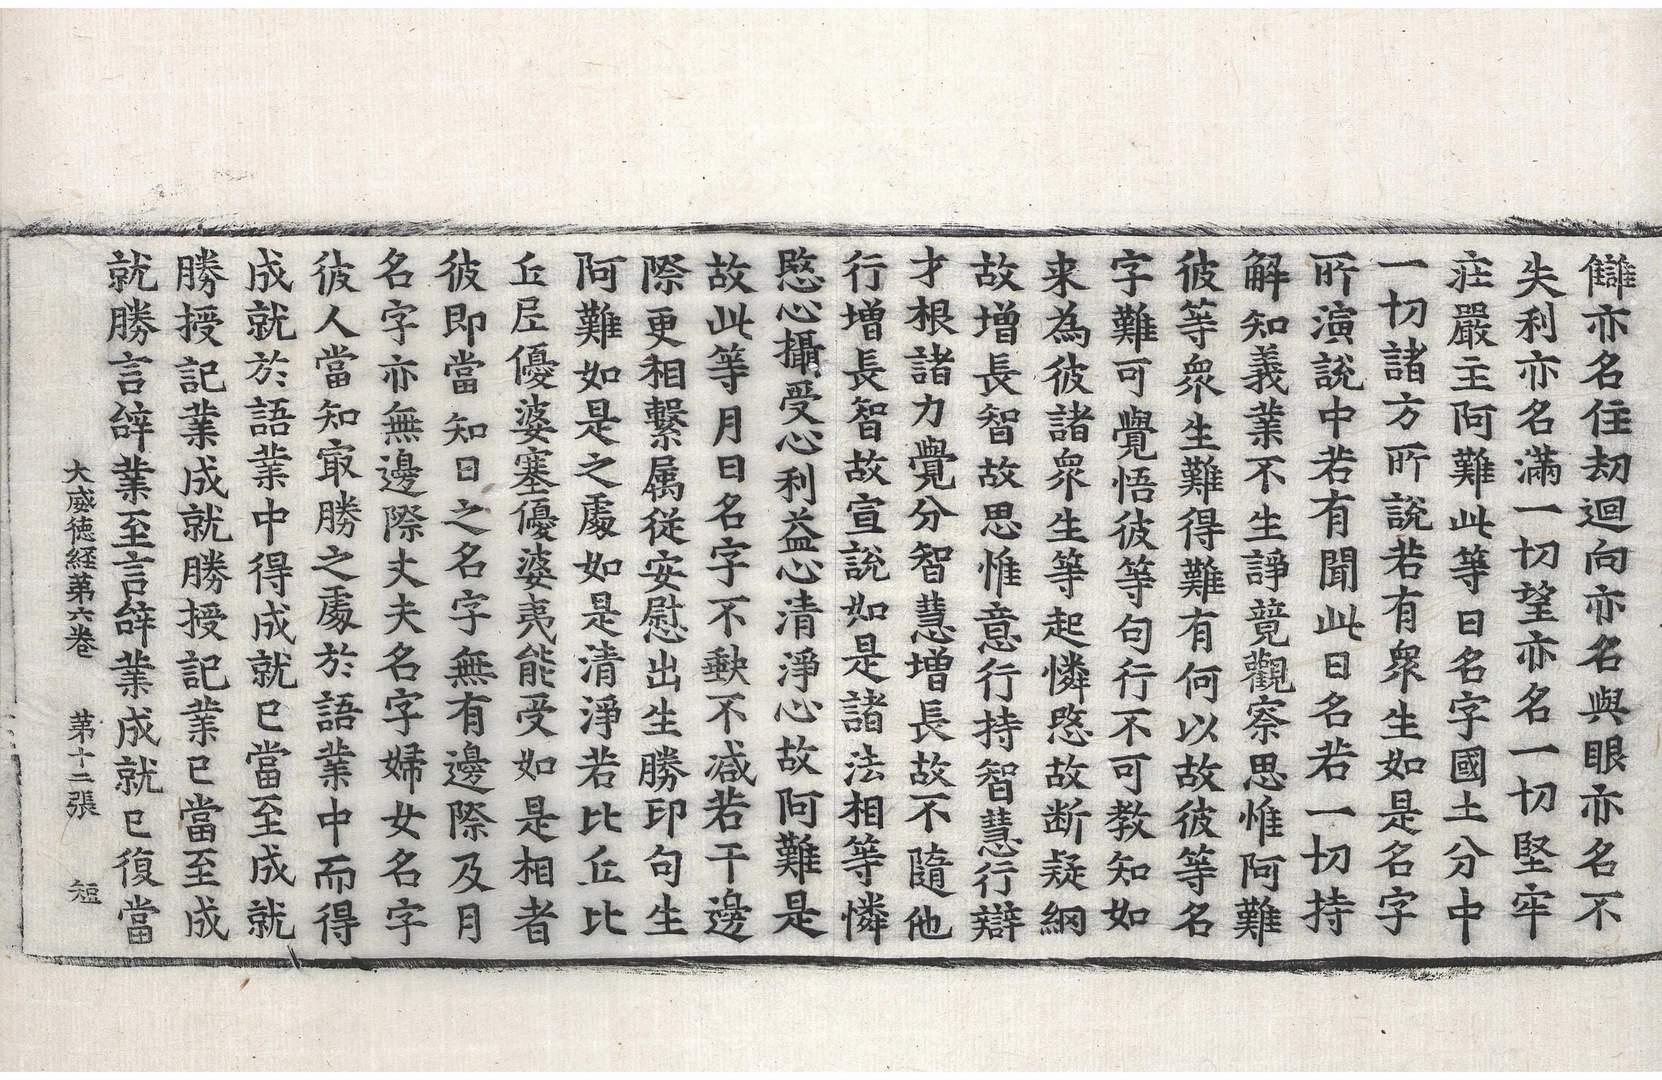 讎亦名住劫迴向亦名與眼亦名不
失利亦名滿一切望亦名一切堅牢
莊嚴主阿難此等日名字國土分中
一切諸方所說若有衆生如是名字
所演說中若有聞此日名若一切持
解知義業不生諍竟觀察思惟阿難
彼等衆生難得難有何以故彼等名
字難可覺悟彼等句行不可教知如
来為彼諸衆生等起憐愍故断疑網
故增長智故思惟意行持智慧行辯
才根諸力覺分智慧增長故不隨他
行增長智故宣說如是諸法相等憐
愍心攝受心利益心清淨心故阿難是
故此等月日名字不缺不減若干邊
際更相繫属從安慰出生勝印句生
阿難如是之處如是清淨若比丘比
丘尼優婆塞優婆夷能受如是相者
彼即當知日之名字無有邊際及月
名字亦無邊際丈夫名字婦女名字
彼人當知㝡勝之處於語業中而得
成就於語業中得成就已當至成就
勝授記業成就勝授記業已當至成
就勝言辞業至言辞業成就已復當
大威徳経第六巻 第十二張 短